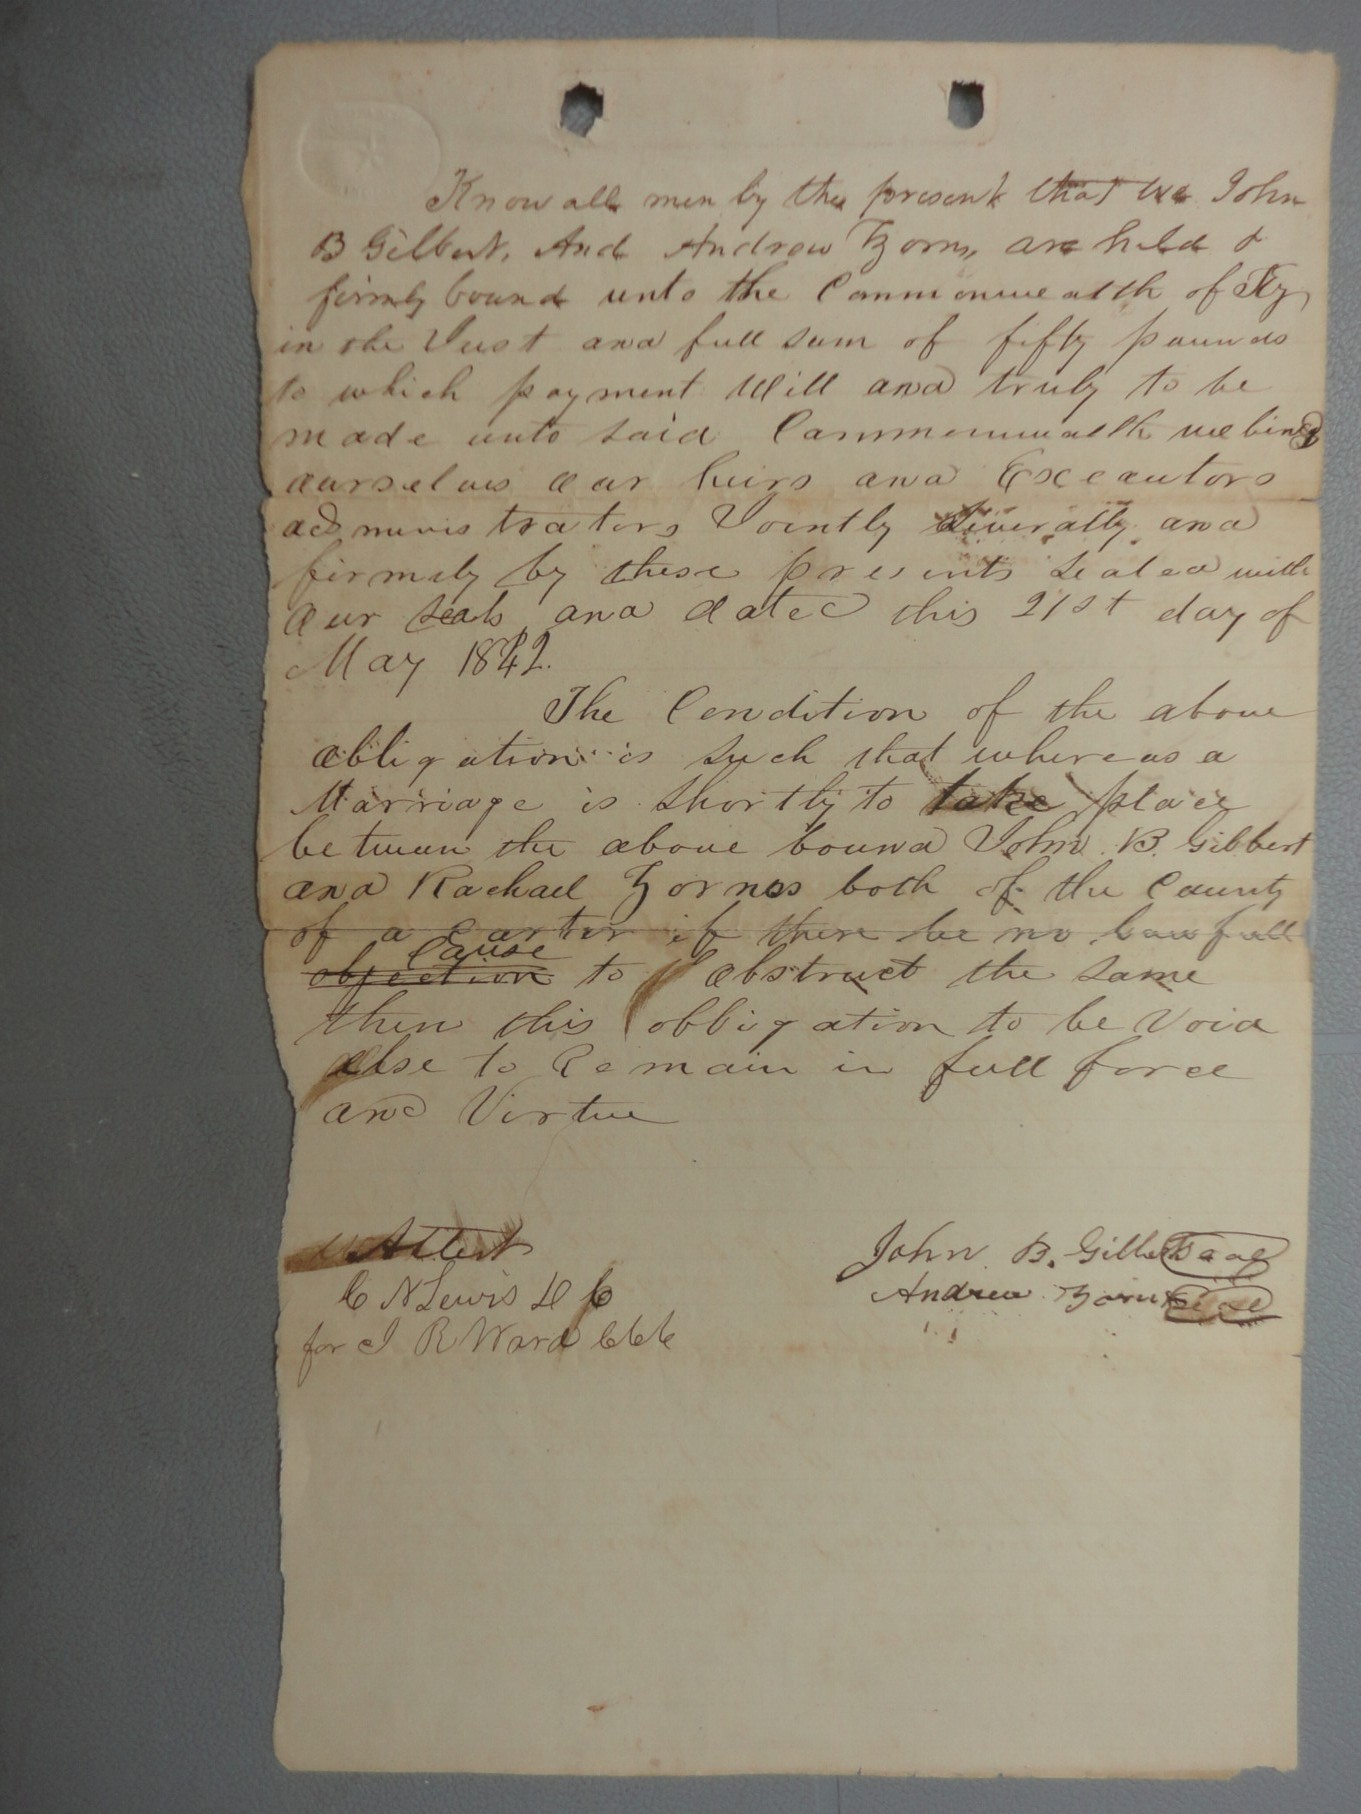 Know all men by the present that we John
B Gilbert, And Andrew Zorns, are held &
firmly bound unto the Commonwealth of Ky
in the Just and full sum of fifty pounds
to which payment Well and truly to be
made unto said Commonwealth we bind
ourselves our heirs and Executors
administrators Jointly Severally and
firmly by these presents sealed with
our seals and dated this 21st day of
May 1842.
The Condition of the above
obligation is such that whereas a
Marriage is shortly to take place
between the above bound John B. Gilbert
and Rachael Zornes both of the County
of a Carter if there be no lawfull
Cause
objection to obstruct the same
then this obligation to be Void
else to Remain in full force
and Virtue
Attest
C N Lewis D C
for J R Ward C C C
John B. Gilbert Seal
Andrew Zorns Seal